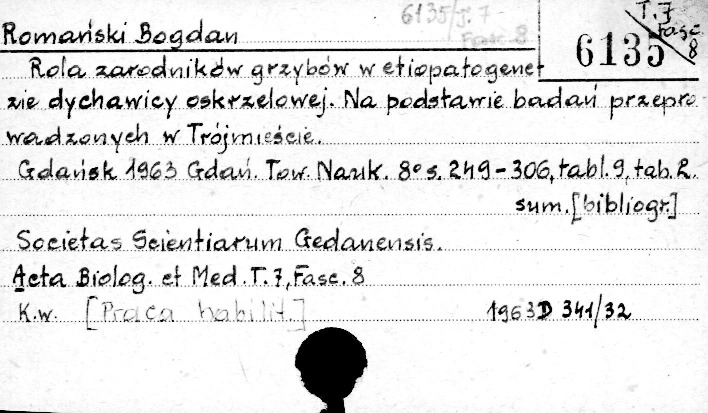 6135/T. 7
Fasc. 8
T. 7
Fasc
8
6135
Romański Bogdan
Rola zarodników grzybów w etiopatogene
zie dychawicy oskrzelowej. Na podstawie badań przepro
wadzonych w Trójmieście.
Gdańsk 1963 Gdań. Tow. Nauk. 8° s. 249-306, tabl. 9, tab. 2.
sum. [bibliogr.]
Societas Scientiarum Gedanensis.
Acta Biolog. et Med. T. 7, Fasc. 8
K.w. [Praca habilit.]
1963 D 341/32